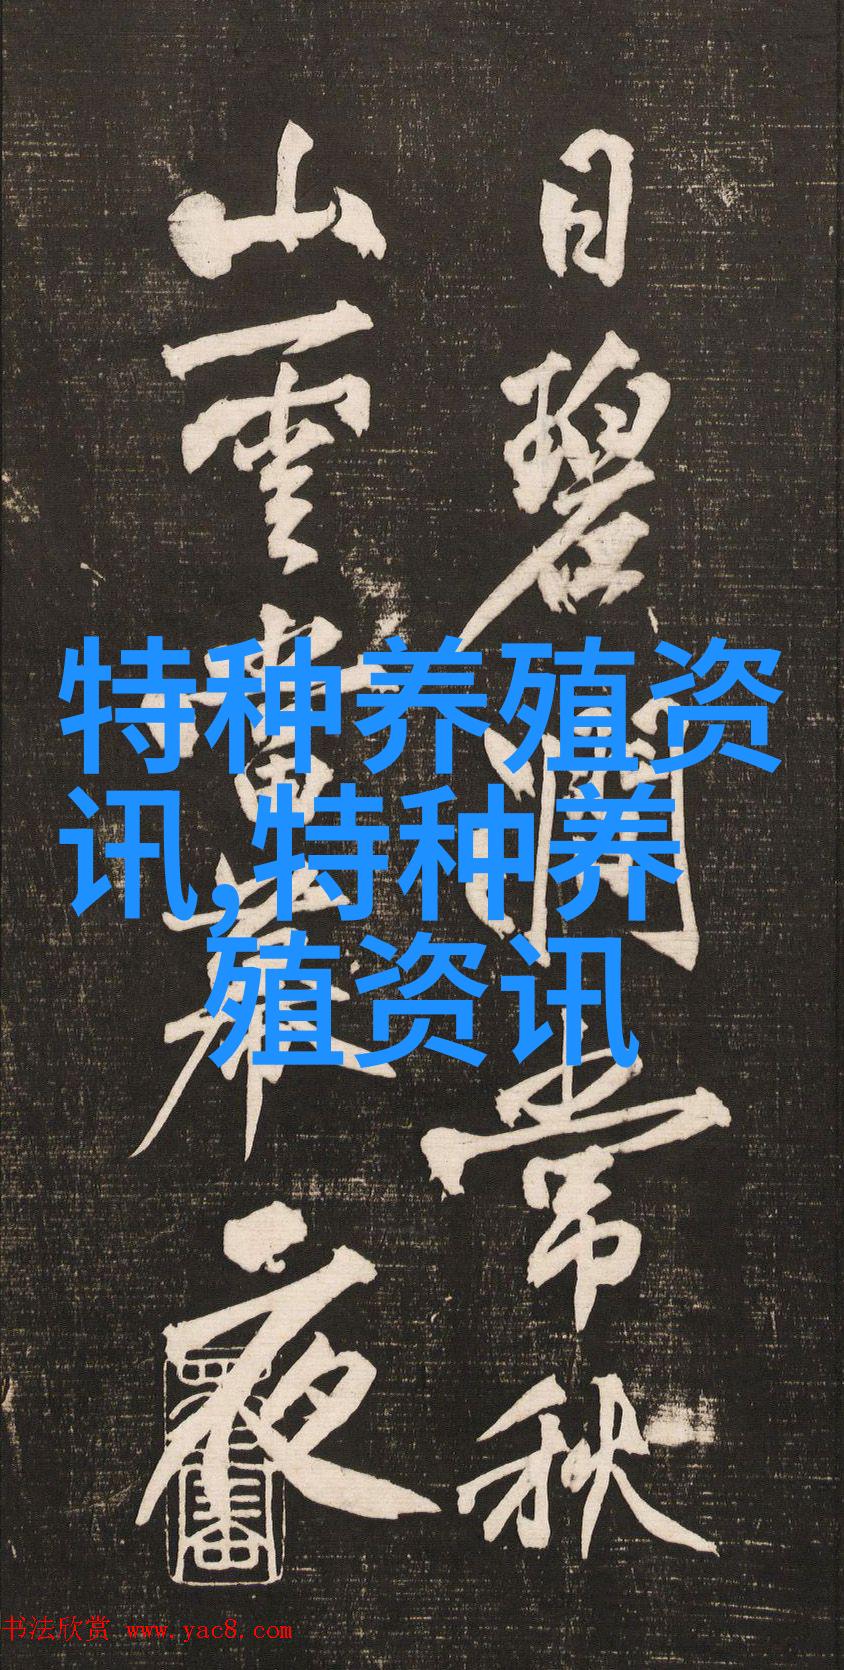 特种养殖资
讯,特种养
殖资讯
日碧澗常秋
山雲夜
书法欣赏 www.yac8.com